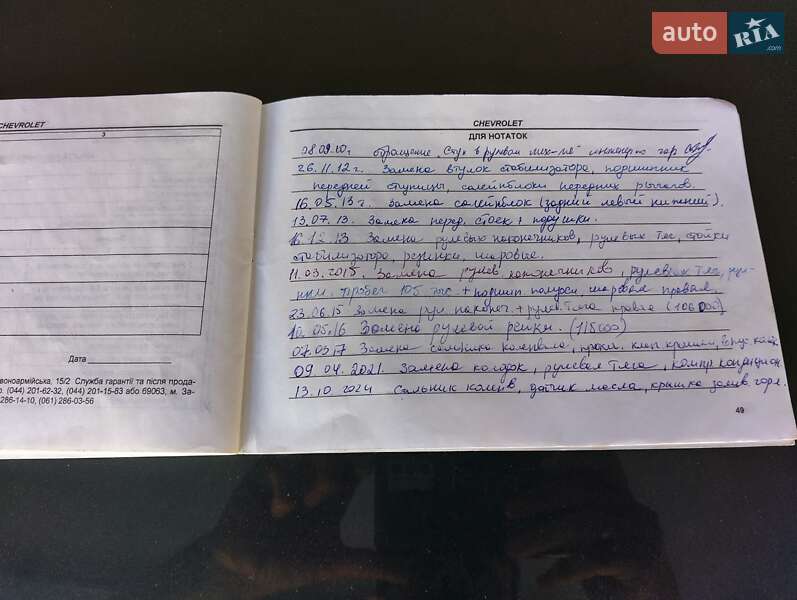 auto RIA .com
CHEVROLET
3
Дата
воноармійська, 15/2 Служба гарантії та після прода-
(044) 201-62-32, (044) 201-15-63 або 69063, м. За-
286-14-10, (061) 286-03-56
CHEVROLET
ДЛЯ НОТАТОК
08.09.10г обращение. Стук в рулевом
26.11.12г. Замена втулок стабилизатора, подшипник
передней ступицы, салейнблоки передних рычагов.
16.05.13г. Замена салейнблок (задний левый нижний).
13.07.13. Замена перед. стоек + подушки.
16.12.13 Замена рулевых наконечников, рулевых тяг, стойки
стабилизатора, резинки, шаровые.
11.03.2015. Замена рулев. наконечников, рулевых тяг,
пробег 105 тыс + подшип полуси, шаровая правая.
23.06.15 Замена рул након. + рулев. тяга правая (106000)
10.05.16 Замена рулевой рейки. (118000)
07.03.17 Замена сальника коленвала, прокл. клап крышки,
09.04.2021. Замена колодок, рулевая тяга, компр кондицион.
13.10.2024 Сальник колен, датчик масла, крышка залив. горл.
49